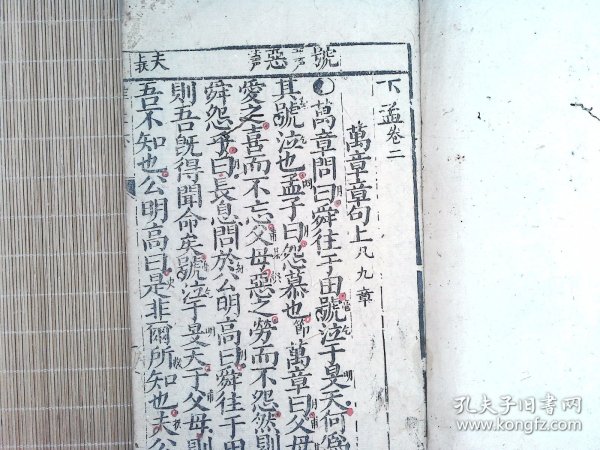 下孟卷二
萬章章句上凡九章
萬章問曰舜往于田號泣于旻天何爲
其號泣也孟子曰怨慕也節萬章曰父母
愛之喜而不忘父母惡之勞而不怨然則
舜怨乎曰長息問於公明高曰舜往于田
則吾旣得聞命矣號泣于旻天于父母則
吾不知也公明高曰是非爾所知也夫公
號
惡
夫
孔夫子旧书网
www.kongfz.com